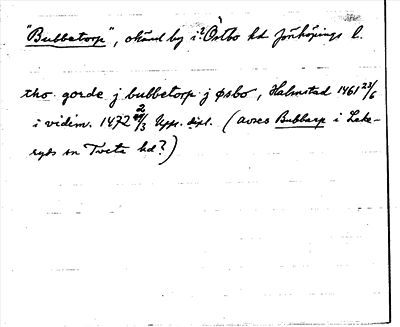 "Bubbetorp", okänd by i ? Östbo hd Jönköpings l.
tho gorde j bubbetorp j øsbo, Halmstad 1461 23/6
i vidim. 1472 2/3 Upps. dipl. (avses Bubbarp i Lekeryds sn Tveta hd?)